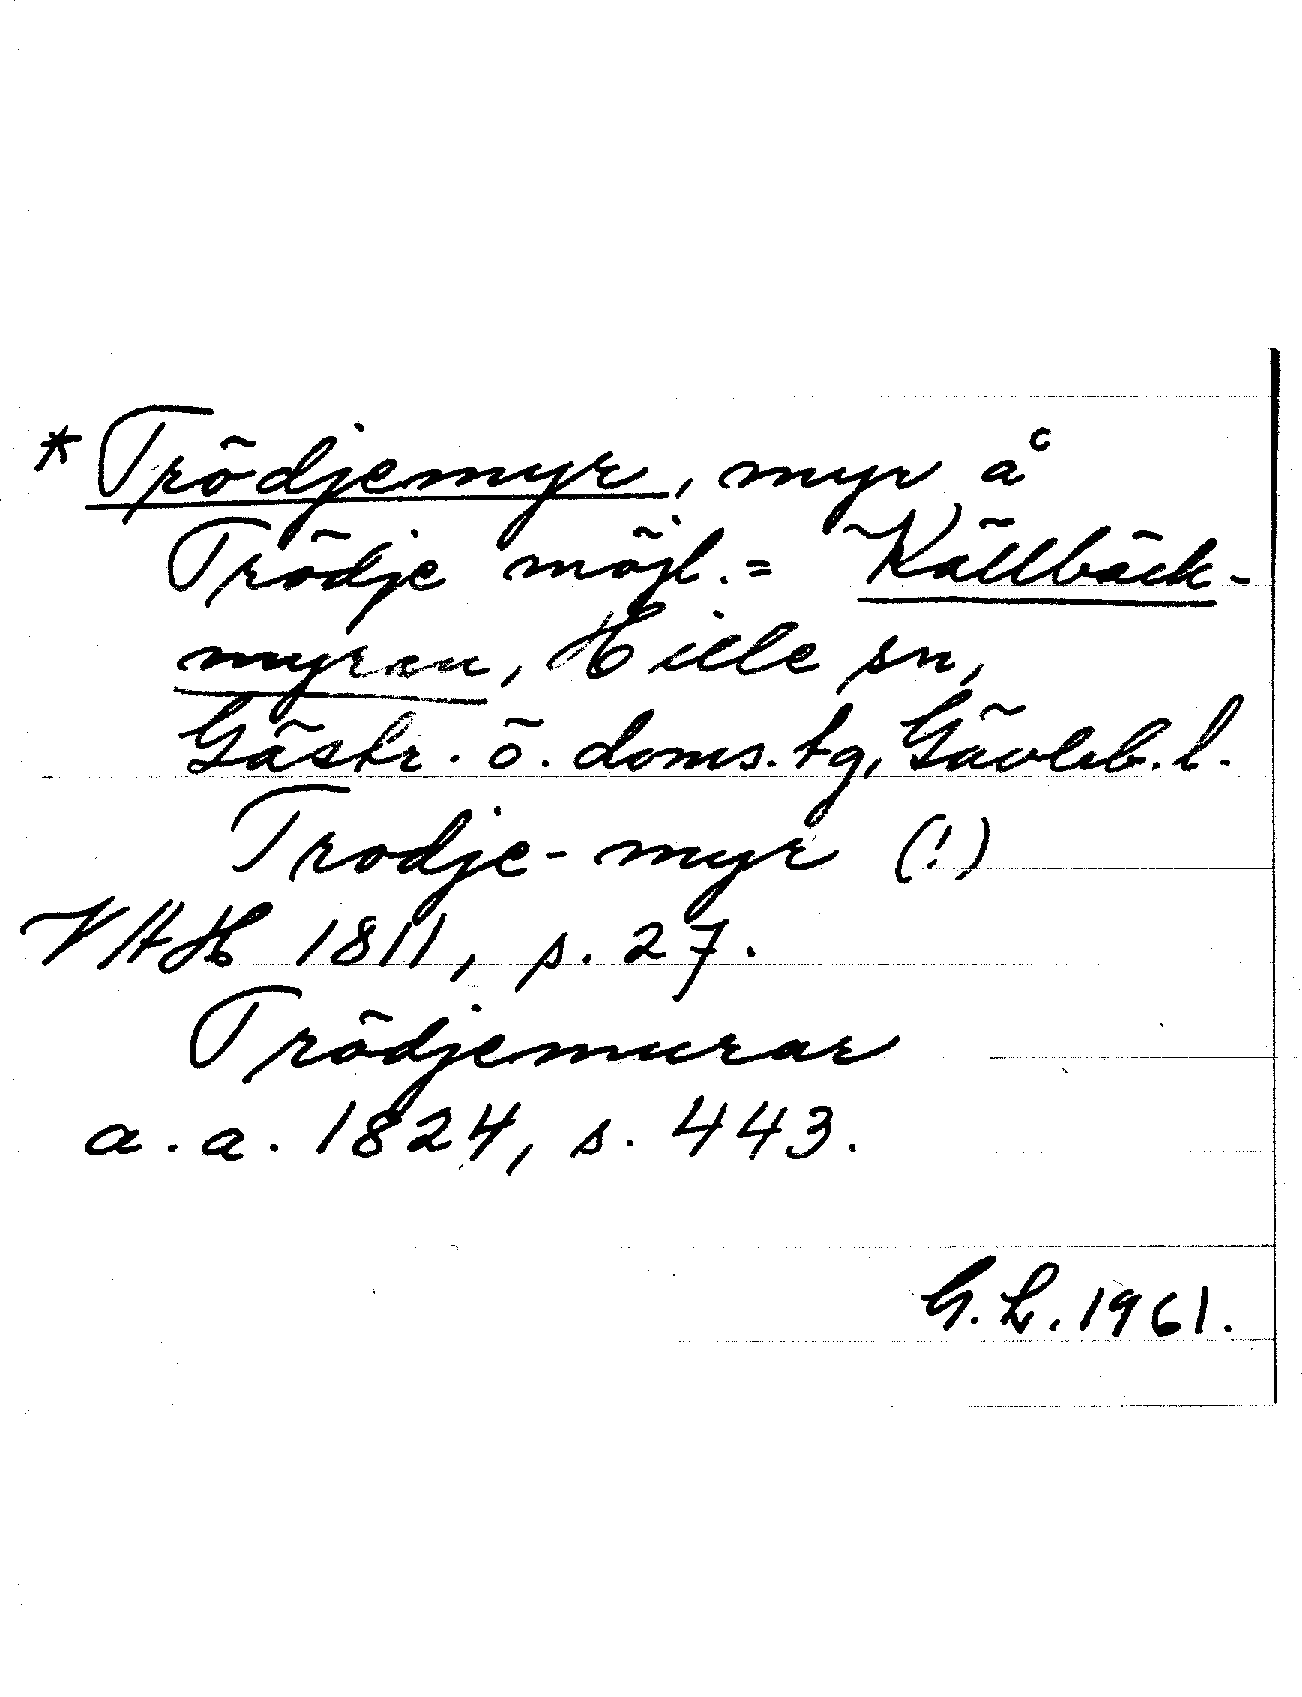 * Trödjemyr, myr å
Trödje möjl. = Källbäck-
myran, Hille sn,
Gästr. ö. doms. tg, Gävleb. l.
Trodje-myr (!)
VAH 1811, s. 27.
Trödjemurar
a. a. 1824, s. 443.
G. L. 1961.